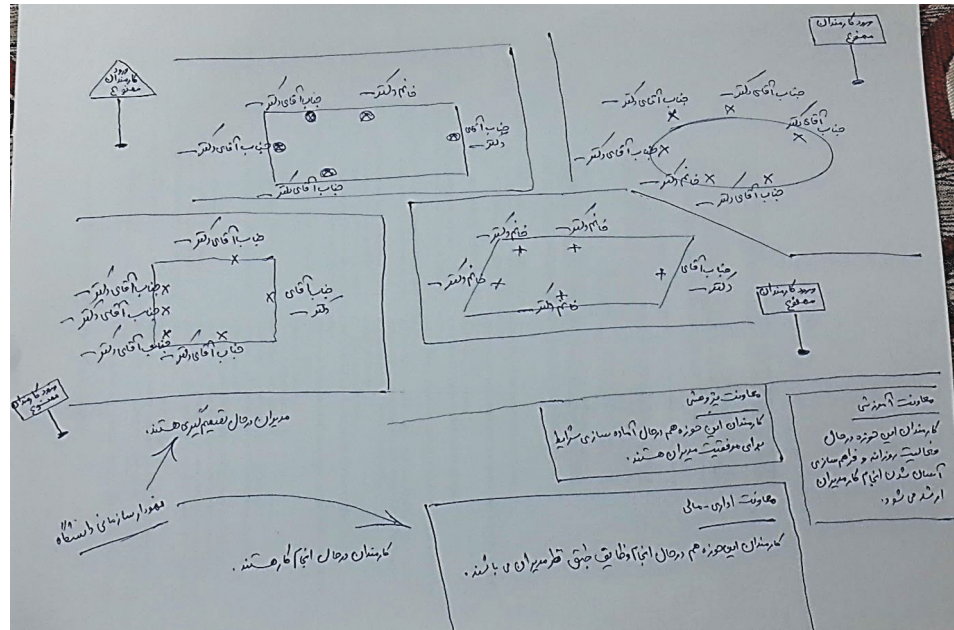 ورود
کارمندان
ممنوع
ورود کارمندان
ممنوع
جناب آقای دکتر —
خانم دکتر —
جناب آقای دکتر —
جناب آقای
دکتر —
جناب آقای دکتر —
جناب آقای دکتر —
جناب آقای دکتر —
جناب آقای دکتر
جناب آقای دکتر —
خانم دکتر —
جناب آقای دکتر —
جناب آقای دکتر —
جناب آقای دکتر —
جناب آقای دکتر —
جناب آقای دکتر —
جناب آقای دکتر —
جناب آقای
دکتر —
خانم دکتر —
خانم دکتر —
خانم دکتر —
خانم دکتر —
جناب آقای
دکتر —
ورود کارمندان
ممنوع
ورود کارمندان
ممنوع
مدیران در حال تصمیم گیری هستند.
نمودار سازمانی دانشگاه
کارمندان در حال انجام کار هستند.
معاونت پژوهشی
کارمندان این حوزه هم در حال آماده سازی شرایط
برای موفقیت مدیران هستند.
معاونت آموزشی
کارمندان این حوزه در حال
فعالیت روزانه و فراهم سازی
آسان شدن انجام کار مدیران
ارشد می شود.
معاونت اداری - مالی
کارمندان این حوزه هم در حال انجام وظایف طبق نظر مدیران می باشند.